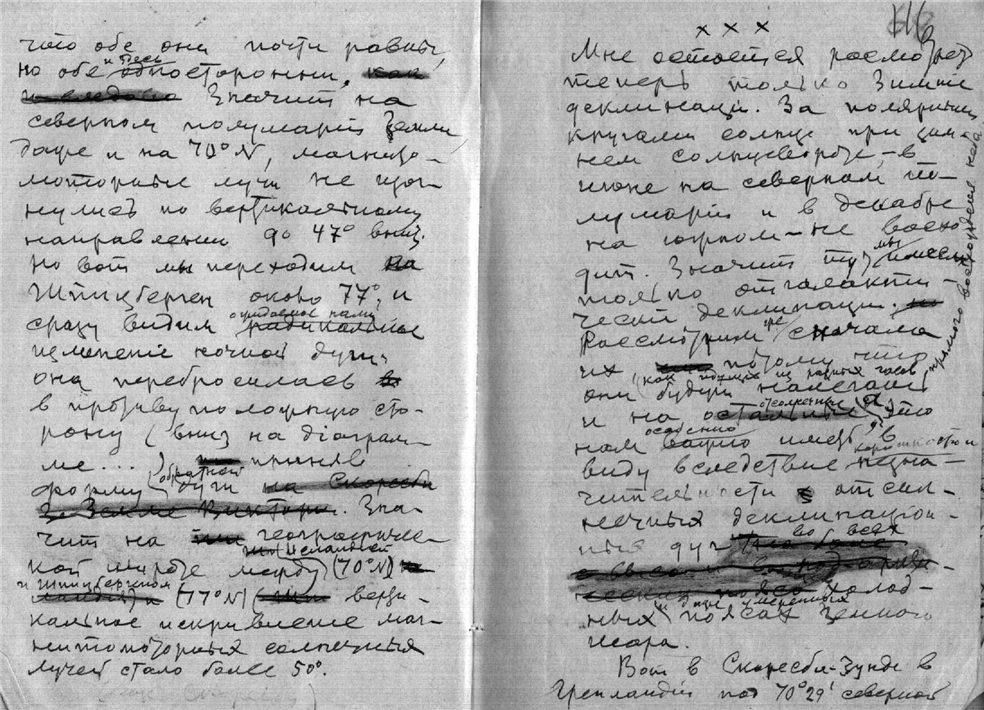 что обе они почти равны,
но обе и здесь односторонни.
Значит на
северном полушарiи Земли
даже и на 70° N, магнито-
моторные лучи не изог-
нулись по вертикальному
направлению до 47° вниз.
Но вот мы переходим на
Шпицберген около 77°, и
ожидаемое нами
сразу видим радикальное
изменение ночной дуги,
она перебросилась
в противуположную сто-
рону (вниз на дiаграм-
ме... приняв
форму обратной дуги на Скоресби
Земле Виктории. Зна-
чит на географиче-
ской широте между Исландией (70° N)
и Шпицбергеном (77° N) верти-
кальное искривление маг-
нитомоторных солнечных
лучей стало более 50°.
x x x
116
Мне остается рассмотреть
теперь только Зимнiя
деклинацiи. За полярными
кругами солнце при зим-
нем солнцевороте, в
июне на северном по-
лушарiи и в декабре
на южном — не восхо-
дит. Значит тут мы имеем
только отгалакти-
ческiя деклинацiи.
Рассмотрим же сначала
их, потому что
они будут, как идущих из разных часов, налегать
и на отсолнечныя. Это
нам особенно важно иметь в
виду вследствие незна-
чительности отсол-
нечных деклинацiон-
ных дуг во всех
холод-
ных и даже умеренных поясах Земного
шара.
Вот в Скоресби-Зунде в
Гренландiи под 70° 29' северной
прямого восхождения неба